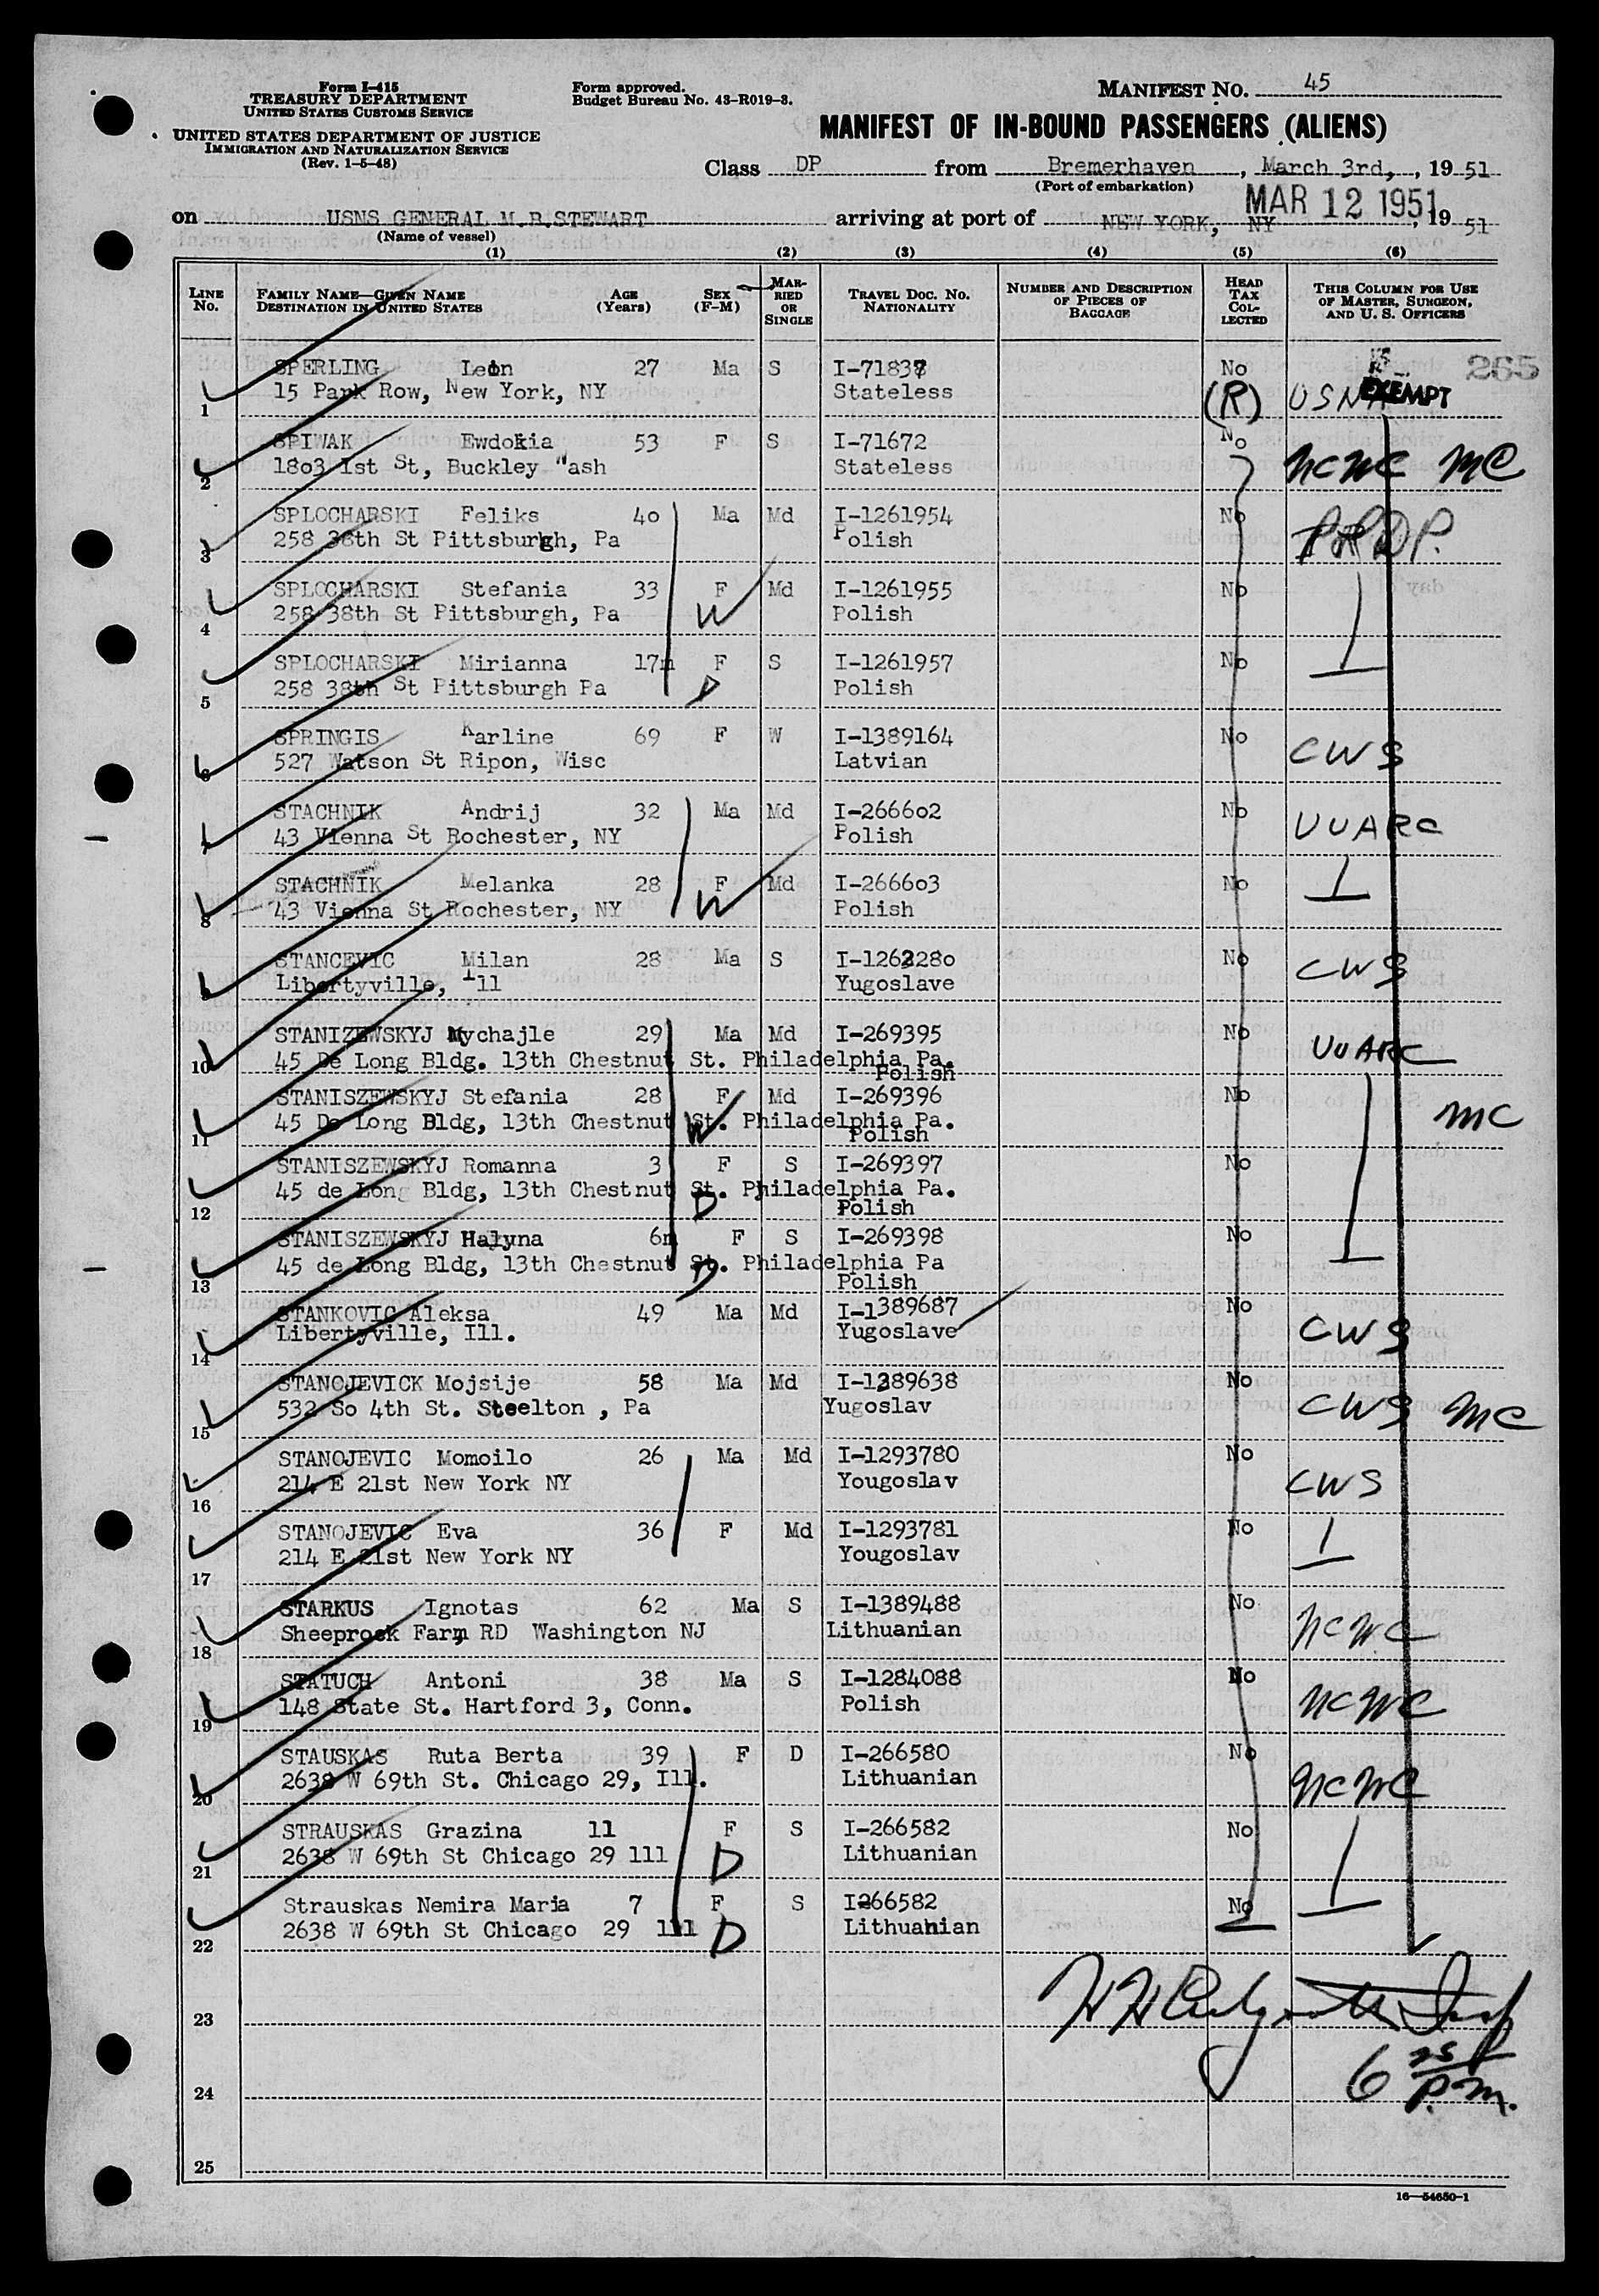 Form I-415
TREASURY DEPARTMENT
UNITED STATES CUSTOMS SERVICE
UNITED STATES DEPARTMENT OF JUSTICE
IMMIGRATION AND NATURALIZATION SERVICE
(Rev. 1-5-48)
Form approved.
Budget Bureau No. 43-R019-3.
MANIFEST NO. 45
MANIFEST OF IN-BOUND PASSENGERS (ALIENS)
Class DP from Bremerhaven, March 3rd, 19 51
(Port of embarkation)
MAR 12 1951
on USNS GENERAL M.B.STEWART arriving at port of NEW YORK, NY, 19 51
(Name of vessel)
(1) (2) (3) (4) (5) (6)
LINE No. FAMILY NAME—GIVEN NAME DESTINATION IN UNITED STATES AGE (Years) SEX (F-M) MARRIED OR SINGLE TRAVEL DOC. NO. NATIONALITY NUMBER AND DESCRIPTION OF PIECES OF BAGGAGE HEAD TAX COLLECTED THIS COLUMN FOR USE OF MASTER, SURGEON, AND U. S. OFFICERS
SPERLING Leon 27 Ma S I-71837 No 265
1 15 Park Row, New York, NY Stateless (R) USNA EXEMPT
SPIWAK Ewdokia 53 F S I-71672 No
2 1803 1st St, Buckley Wash Stateless NCWC MC
SPLOCHARSKI Feliks 40 Ma Md I-1261954 No
3 258 38th St Pittsburgh, Pa Polish
SPLOCHARSKI Stefania 33 F Md I-1261955 No
4 258 38th St Pittsburgh, Pa W Polish
SPLOCHARSKI Mirianna 17m F S I-1261957 No
5 258 38th St Pittsburgh Pa D Polish
SPRINGIS Karline 69 F W I-1389164 No
6 527 Watson St Ripon, Wisc Latvian CWS
STACHNIK Andrij 32 Ma Md I-266602 No
7 43 Vienna St Rochester, NY Polish UUARC
STACHNIK Melanka 28 F Md I-266603 No
8 43 Vienna St Rochester, NY W Polish
STANCEVIC Milan 28 Ma S I-1262280 No
9 Libertyville, Ill Yugoslave CWS
STANIZEWSKYJ Mychajle 29 Ma Md I-269395 No
10 45 De Long Bldg. 13th Chestnut St. Philadelphia Pa. UUARC
Polish
STANISZEWSKYJ Stefania 28 F Md I-269396 No
11 45 De Long Bldg, 13th Chestnut St. Philadelphia Pa. W MC
Polish
STANISZEWSKYJ Romanna 3 F S I-269397 No
12 45 de Long Bldg, 13th Chestnut St. Philadelphia Pa. D
Polish
STANISZEWSKYJ Halyna 6m F S I-269398 No
13 45 de Long Bldg, 13th Chestnut St. Philadelphia Pa D
Polish
STANKOVIC Aleksa 49 Ma Md I-1389687 No
14 Libertyville, Ill. Yugoslave CWS
STANOJEVICK Mojsije 58 Ma Md I-1389638 No
15 532 So 4th St. Steelton , Pa Yugoslav CWS MC
STANOJEVIC Momoilo 26 Ma Md I-1293780 No
16 214 E 21st New York NY Yougoslav CWS
STANOJEVIC Eva 36 F Md I-1293781 No
17 214 E 21st New York NY Yougoslav
STARKUS Ignotas 62 Ma S I-1389488 No
18 Sheeprock Farm RD Washington NJ Lithuanian NCWC
STATUCH Antoni 38 Ma S I-1284088 No
19 148 State St. Hartford 3, Conn. Polish NCWC
STAUSKAS Ruta Berta 39 F D I-266580 No
20 2638 W 69th St. Chicago 29, Ill. Lithuanian NCWC
STRAUSKAS Grazina 11 F S I-266582 No
21 2638 W 69th St Chicago 29 lll D Lithuanian
Strauskas Nemira Maria 7 F S I266582 No
22 2638 W 69th St Chicago 29 lll D Lithuanian
23
24 6 25 P.M.
25
16—54650-1